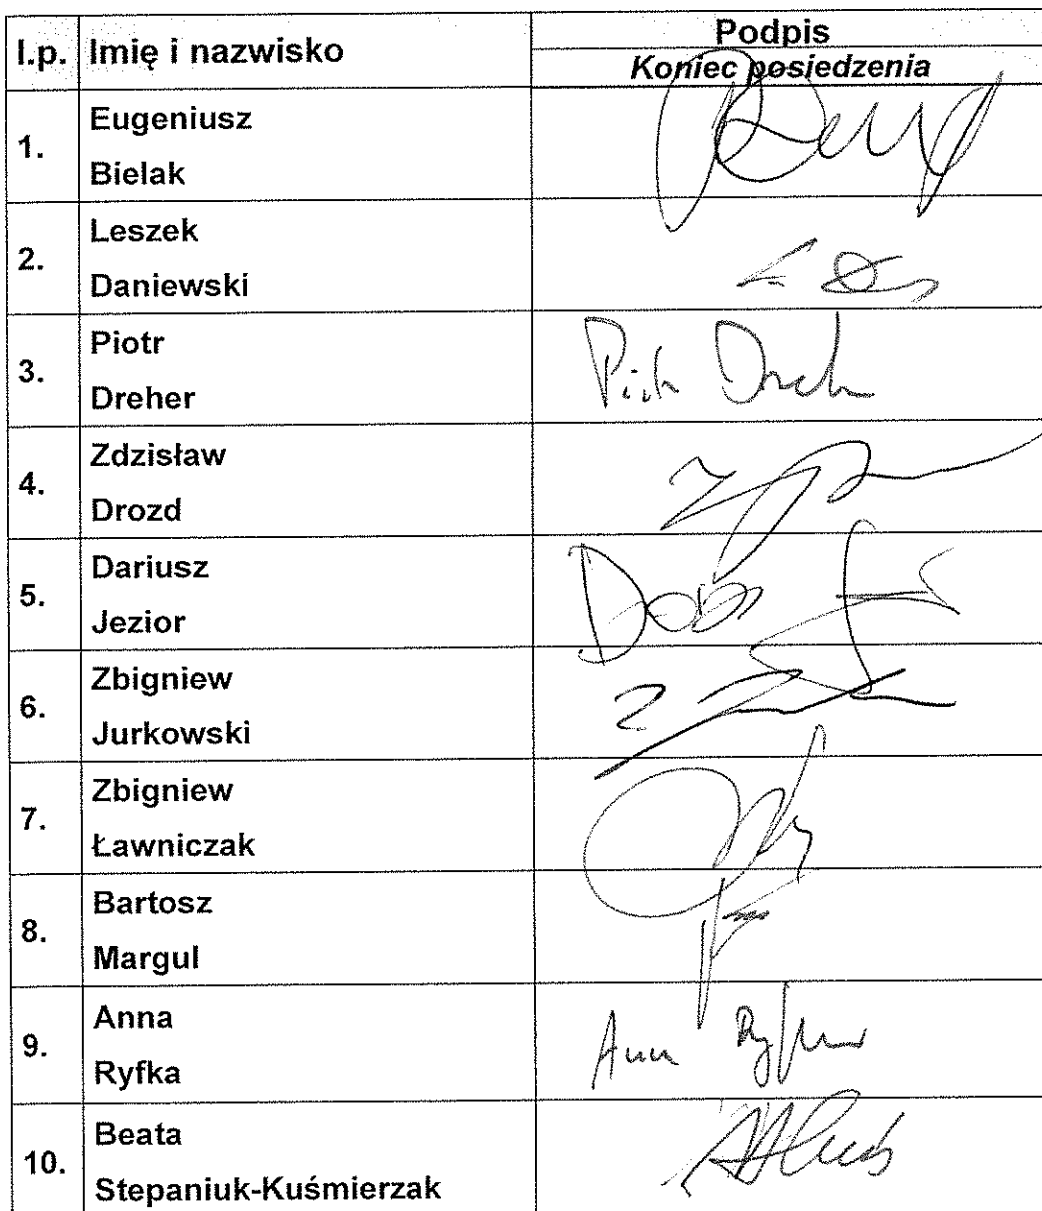 l.p. Imię i nazwisko Podpis
Koniec posiedzenia
1. Eugeniusz
Bielak
2. Leszek
Daniewski
3. Piotr
Dreher
Piotr Dreh
4. Zdzisław
Drozd
5. Dariusz
Jezior
6. Zbigniew
Jurkowski
7. Zbigniew
Ławniczak
8. Bartosz
Margul
9. Anna
Ryfka
Anna Ryfka
10. Beata
Stepaniuk-Kuśmierzak